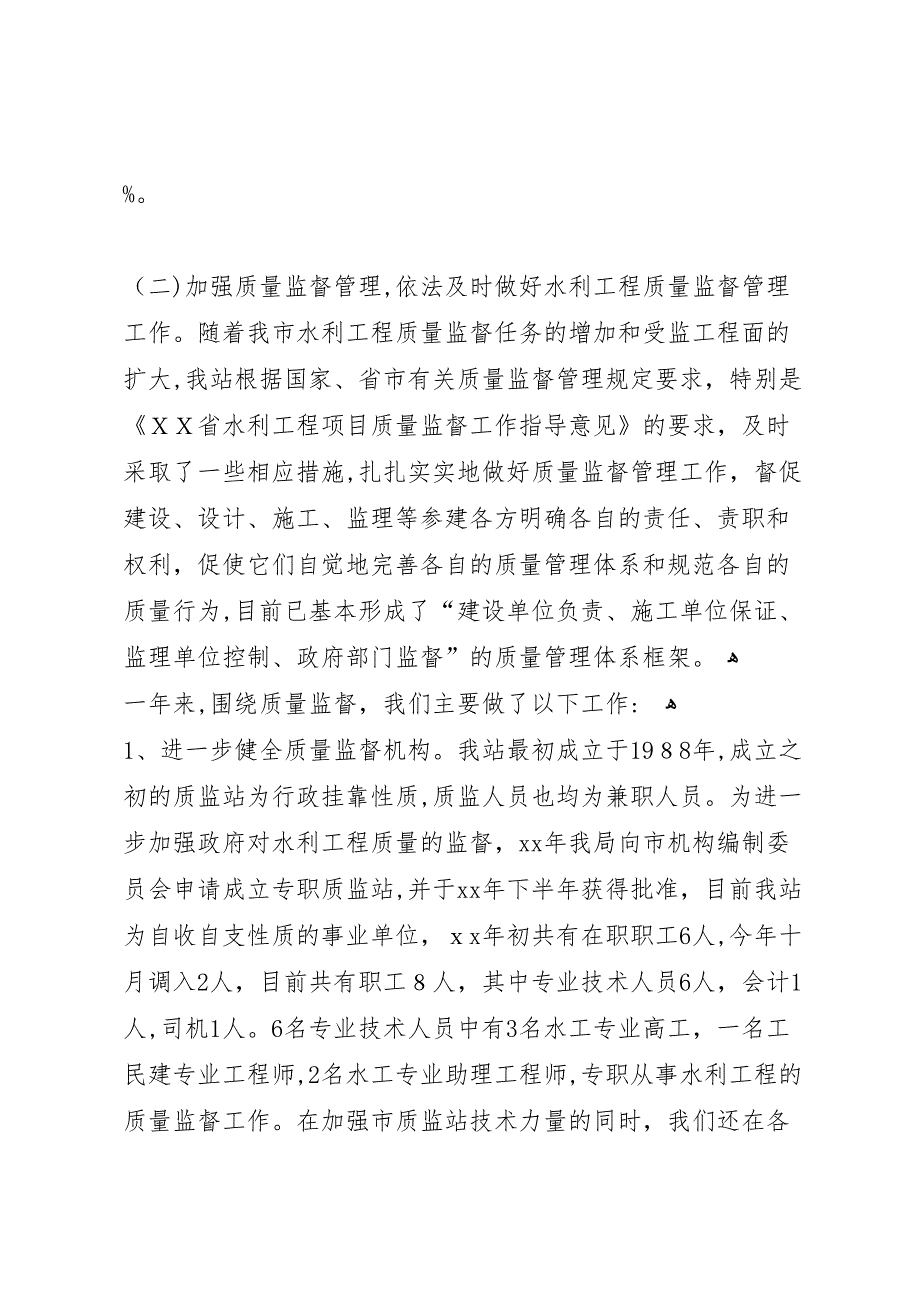 %。
（二)加强质量监督管理,依法及时做好水利工程质量监督管理
工作。随着我市水利工程质量监督任务的增加和受监工程面的
扩大,我站根据国家、省市有关质量监督管理规定要求，特别是
《ＸＸ省水利工程项目质量监督工作指导意见》的要求，及时
采取了一些相应措施,扎扎实实地做好质量监督管理工作，督促
建设、设计、施工、监理等参建各方明确各自的责任、责职和
权利，促使它们自觉地完善各自的质量管理体系和规范各自的
质量行为,目前已基本形成了“建设单位负责、施工单位保证、
监理单位控制、政府部门监督”的质量管理体系框架。 ﻫ
一年来,围绕质量监督，我们主要做了以下工作: ﻫ
1、进一步健全质量监督机构。我站最初成立于19８8年,成立之
初的质监站为行政挂靠性质,质监人员也均为兼职人员。为进一
步加强政府对水利工程质量的监督，xx年我局向市机构编制委
员会申请成立专职质监站,并于xx年下半年获得批准，目前我站
为自收自支性质的事业单位，ｘx年初共有在职职工6人,今年十
月调入2人，目前共有职工８人，其中专业技术人员6人，会计1
人,司机1人。6名专业技术人员中有3名水工专业高工，一名工
民建专业工程师,2名水工专业助理工程师,专职从事水利工程的
质量监督工作。在加强市质监站技术力量的同时，我们还在各